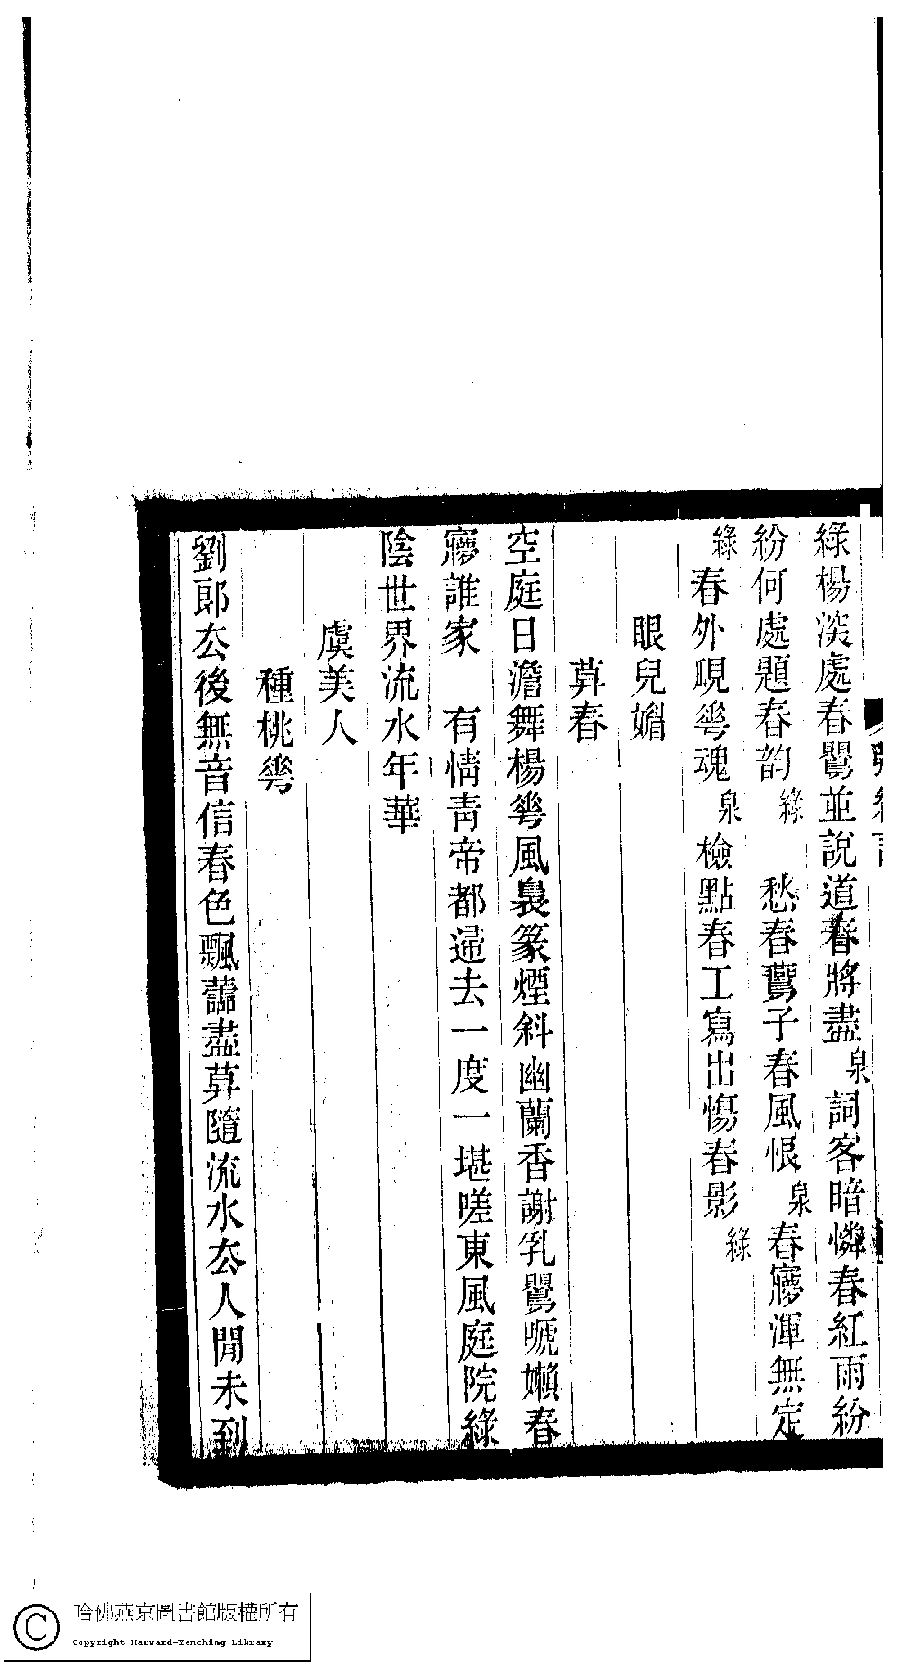 綠楊深處春鸎並說道春將盡泉詞客暗憐春紅雨紛
紛何處題春韵綠　愁春鷰子春風恨泉春㝱渾無定
綠春外覒華魂泉檢點春工寫出傷春影綠
眼兒媚
莫春
空庭日澹舞楊華風裊篆煙斜幽蘭香謝乳鸎嗁嬾春
㝱誰家　有情靑帝都歸去一度一堪嗟東風庭院綠
陰世界流水年華
虞美人
種桃華
劉郎去後無音信春色飄蕭盡莫隨流水去人閒未到
哈佛燕京圖書館版權所有
Copyright Harvard-Yenching Library